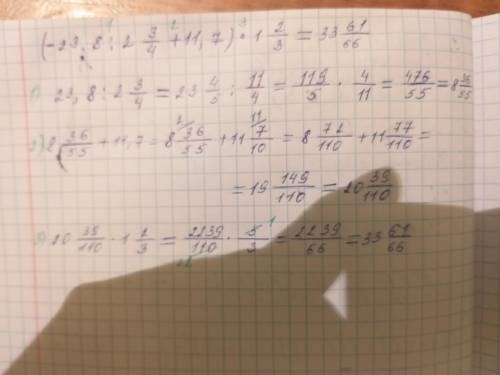 (-23,8:2 3/4+11,7)·1 2/3=33 61/66
1) 23,8:2 3/4=23 4/5:11/4=119/5·4/11=476/55=8 36/55
2) 8 36/55+11,7=8 36/55+11 7/10=8 72/110+11 77/110=
=19 149/110=20 39/110
3) 20 39/110·1 2/3=2239/110·5/3=2239/66=33 61/66